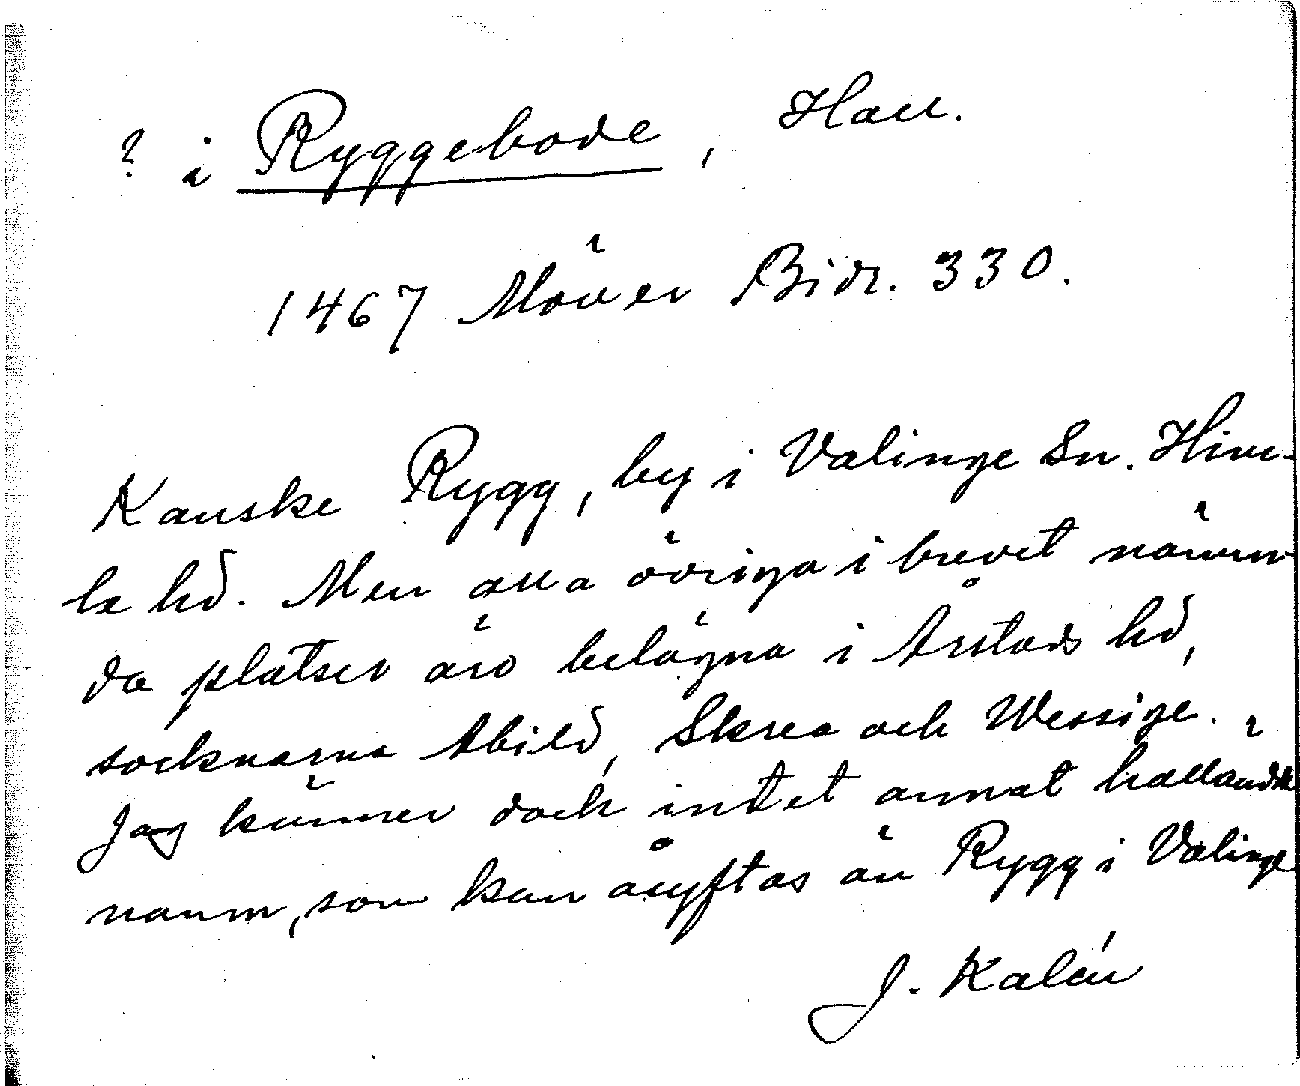 ? i Ryggebode, Hall.
1467 Möller Bidr. 330.
Kanske Rygg, by i Valinge Sn. Him-
le hd. Men alla övriga i brevet nämn-
da platser äro belägna i Årstads hd,
socknarna Abild, Skrea och Wessige.
Jag känner dock intet annat halländsk
namn, som kan åsyftas än Rygg i Valinge
J. Kalén